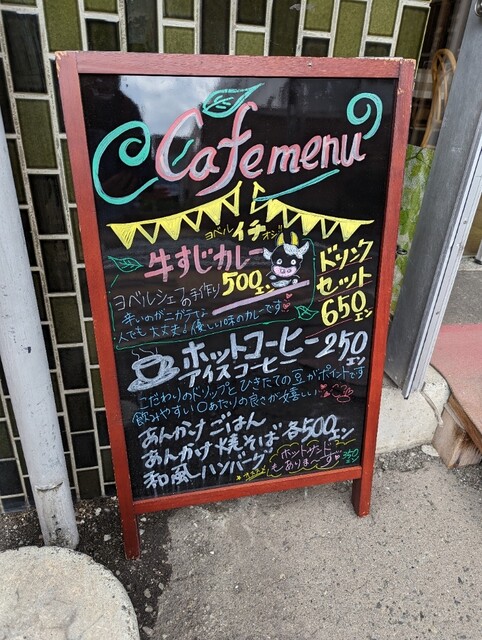 Cafe menu
ヨベル イチ オシ
牛すじカレー 500エン
ドリンク
セット
650
エン
ヨベルシェフの手作り
辛いのがニガテな
人でも大丈夫 優しい味のカレーです
ホットコーヒー 250
アイスコーヒー エン
こだわりのドリップとひきたての豆がポイントです
飲みやすい口あたりの良さが嬉しい
あんかけごはん
あんかけ焼そば 各500エン
和風ハンバーグ
ホットサンド
もあります 350
エン